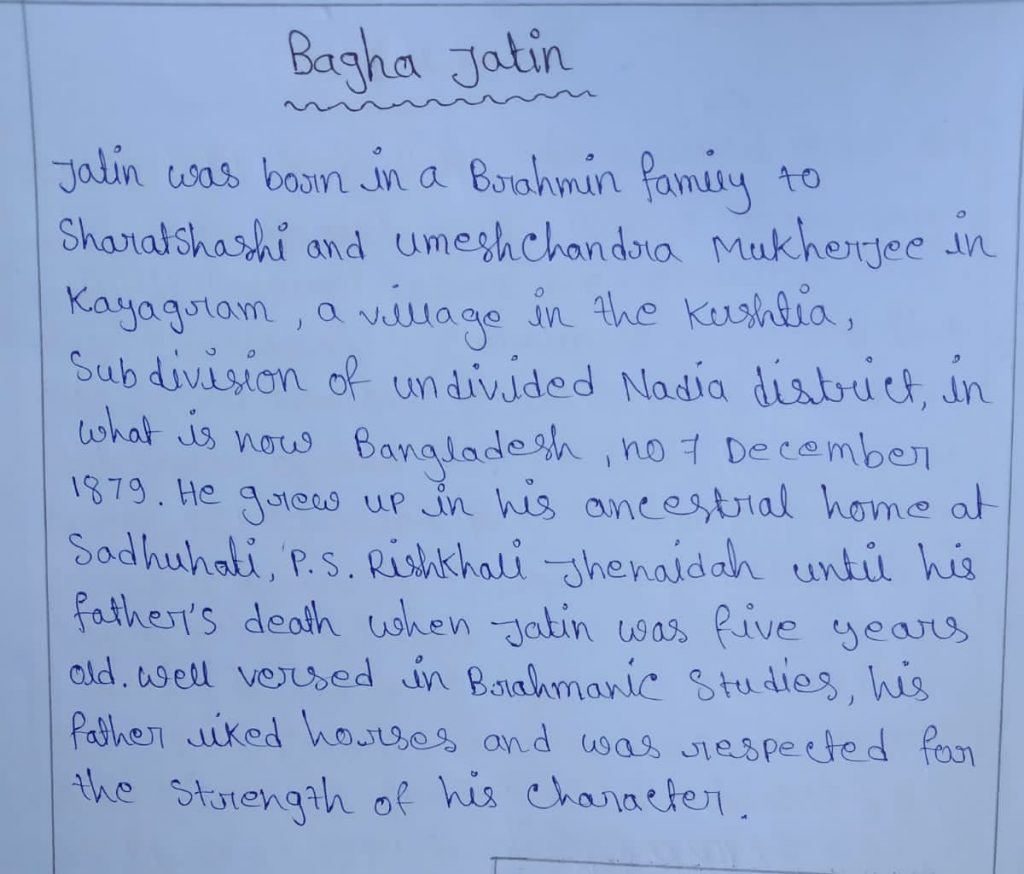 Bagha Jatin
Jatin was born in a Brahmin family to
Sharatshashi and Umeshchandra Mukherjee in
Kayagram, a village in the Kushtia,
Subdivision of undivided Nadia district, in
what is now Bangladesh, no 7 December
1879. He grew up in his ancestral home at
Sadhuhati, P.S. Rishkhali Jhenaidah until his
father's death when Jatin was five years
old. well versed in Brahmanic Studies, his
father liked horses and was respected for
the strength of his character.